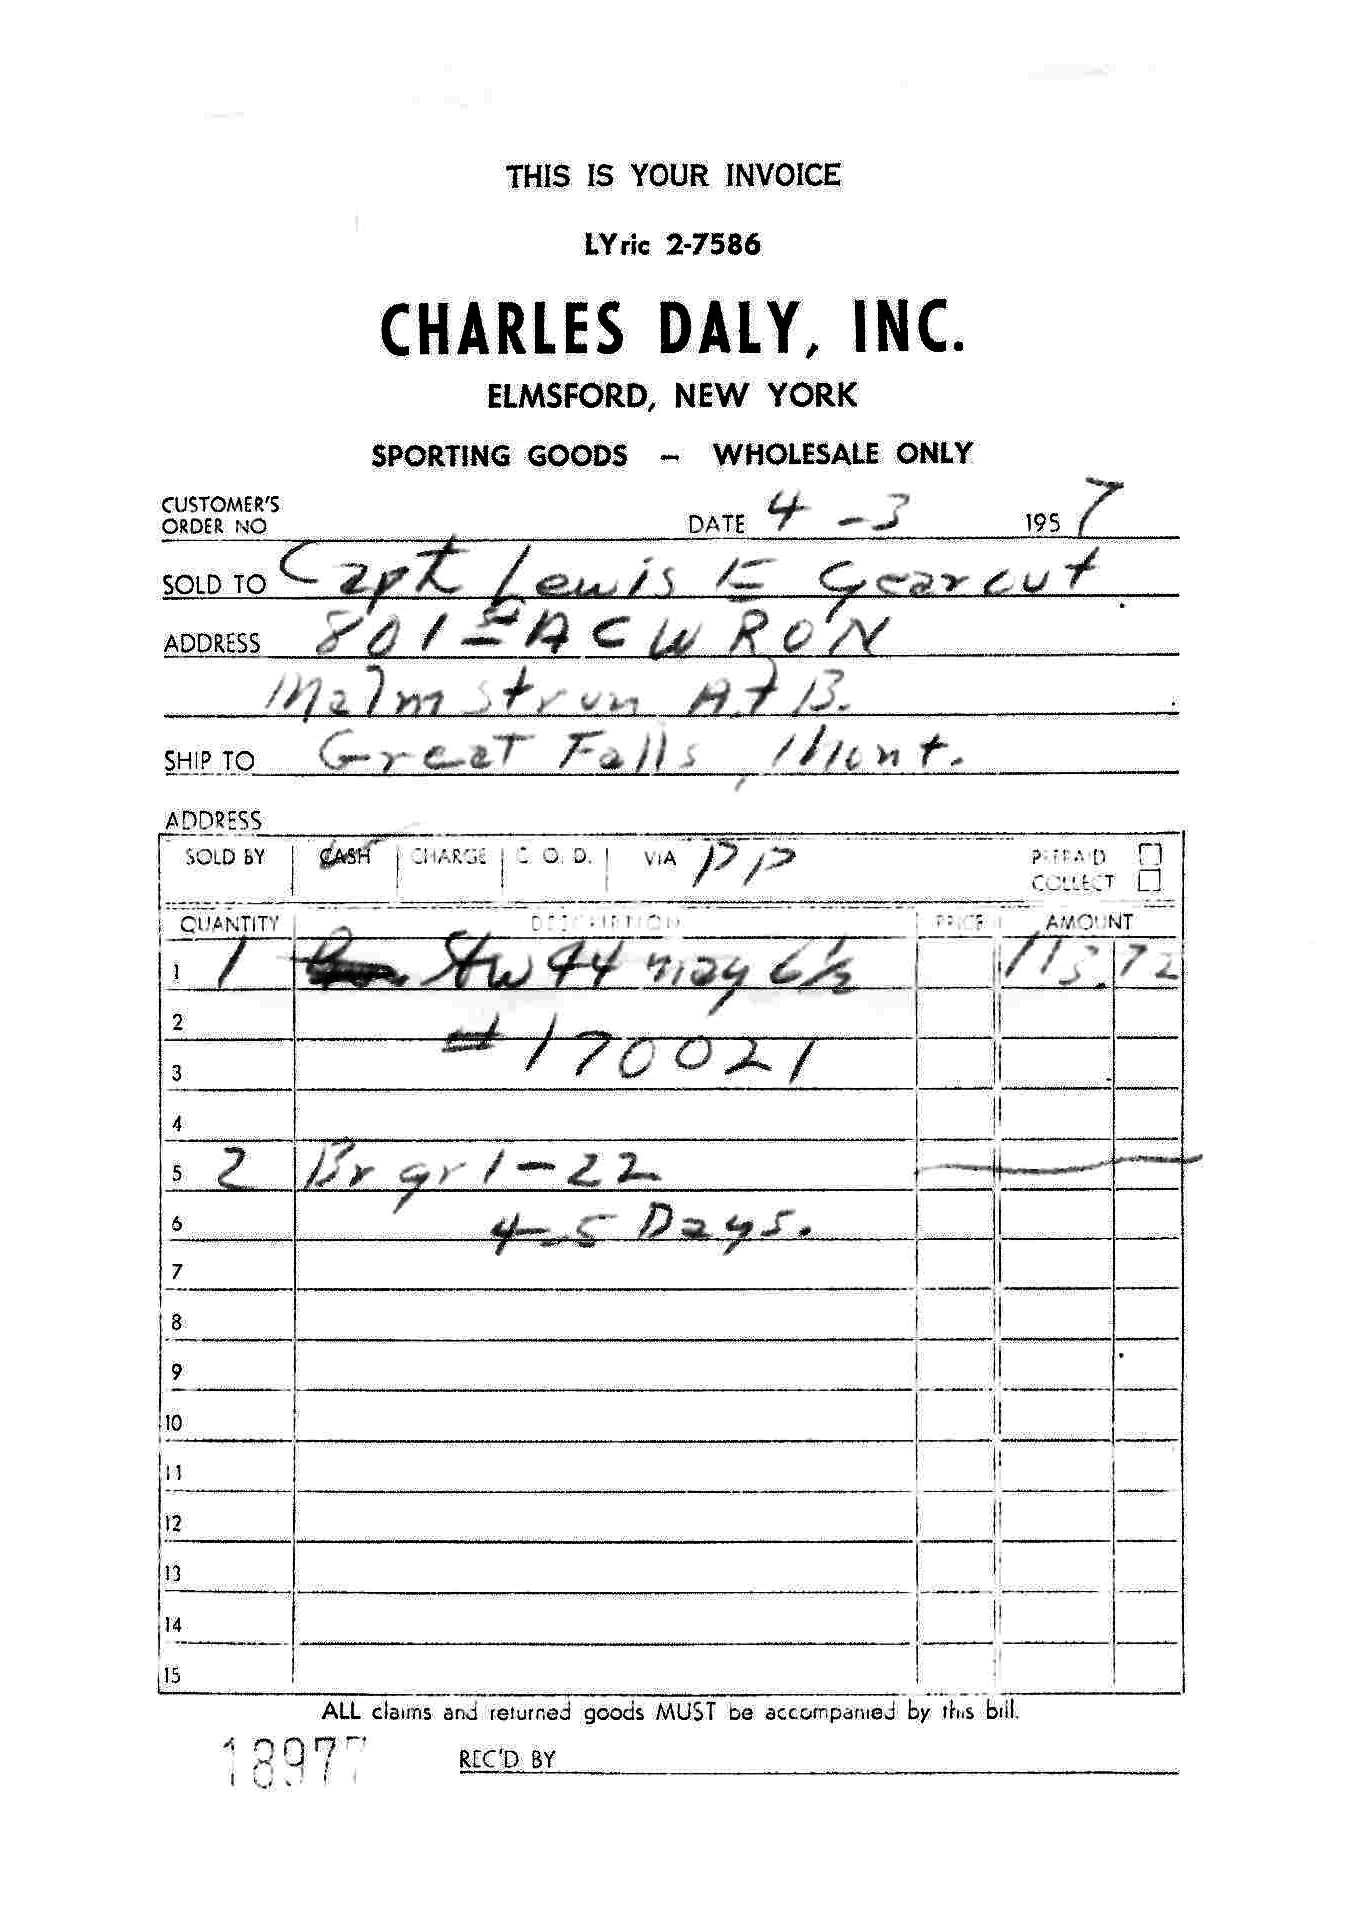 THIS IS YOUR INVOICE
LYric 2-7586
CHARLES DALY, INC.
ELMSFORD, NEW YORK
SPORTING GOODS — WHOLESALE ONLY
CUSTOMER'S ORDER NO DATE 4-3 1957
SOLD TO Capt Lewis E Gearcut
ADDRESS 801st ACWRON
Malmstrum A.F.B.
SHIP TO Great Falls, Mont.
ADDRESS
SOLD BY CASH CHARGE C. O. D. VIA PP PREPAID
COLLECT
QUANTITY DESCRIPTION PRICE AMOUNT
1 1 Stw 44 mag 6½ 113.72
2 #170021
3
4
5 2 Br gr 1-22
6 4-5 Days.
7
8
9
10
11
12
13
14
15
ALL claims and returned goods MUST be accompanied by this bill.
18977 REC'D BY